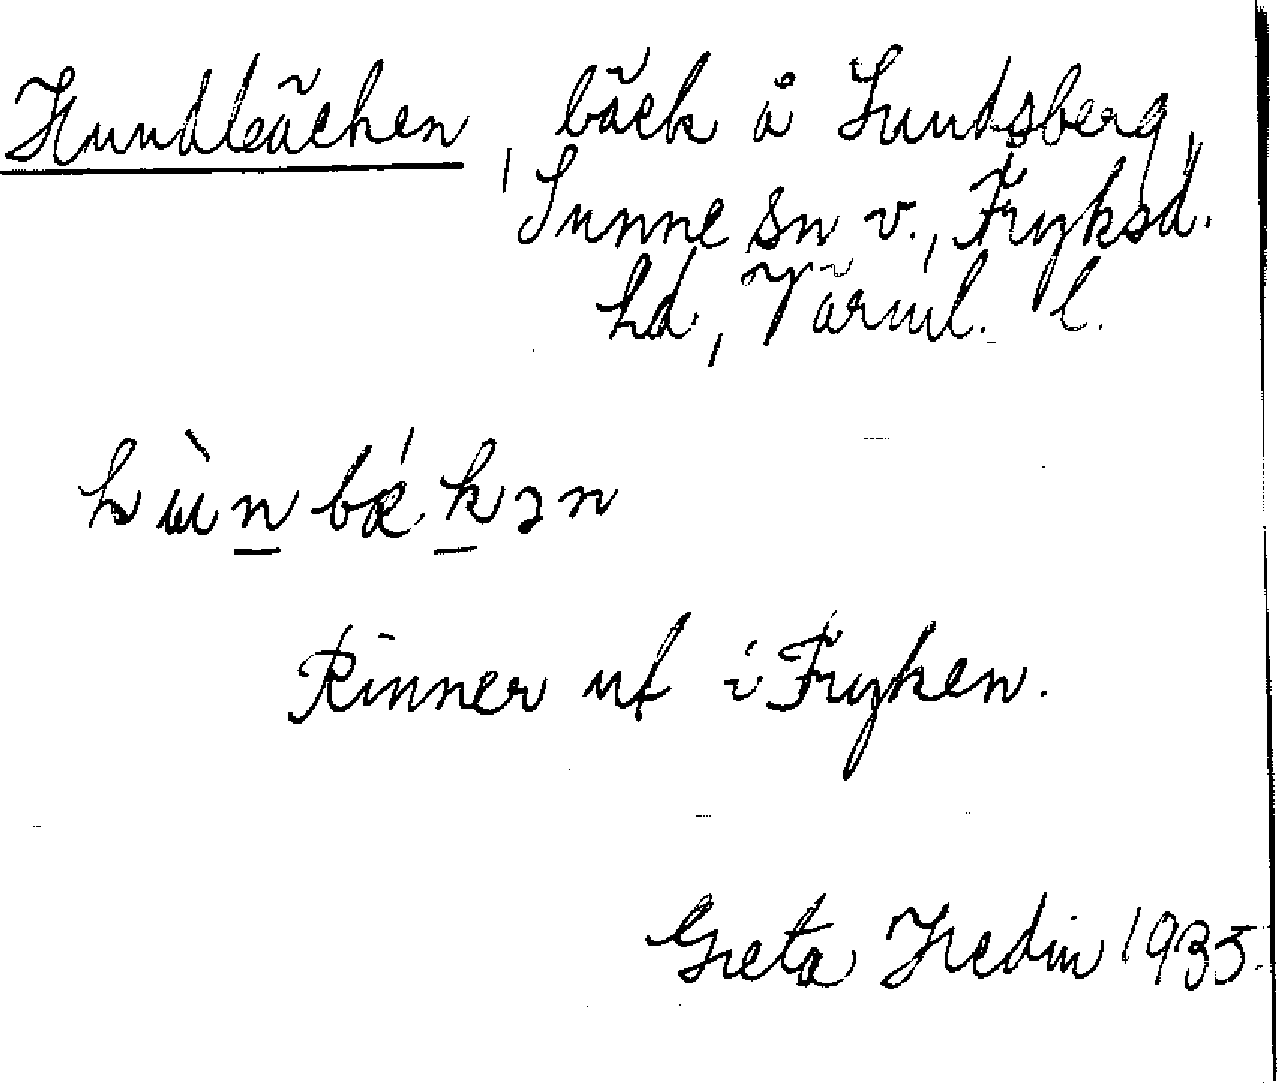 Hundbäcken, bäck å Sundsberg,
Sunne sn v., Fryksd.
hd, Värml. l.
hùn̲bǽk̲ən
Rinner ut i Fryken.
Greta Hedin 1935.